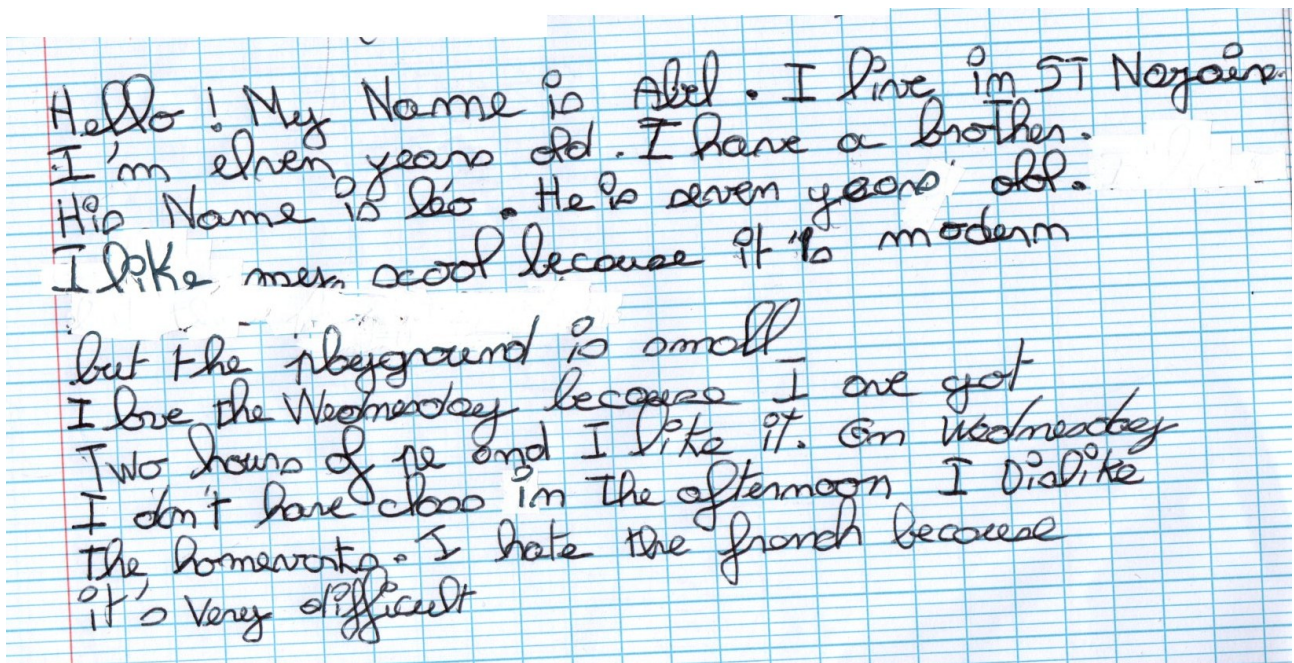 Hello ! My Name is Abel . I live in ST Nazaire.
I'm elven years old . I have a brother.
His Name is léo . He is seven years old.
I like my scool because it's modern
but the playground is small
I love the Wednesday because I ave got
Two hours of pe and I like it. On Wednesday
I don't have class in the afternoon I Dislike
the homeworks. I hate the french because
it's very difficult